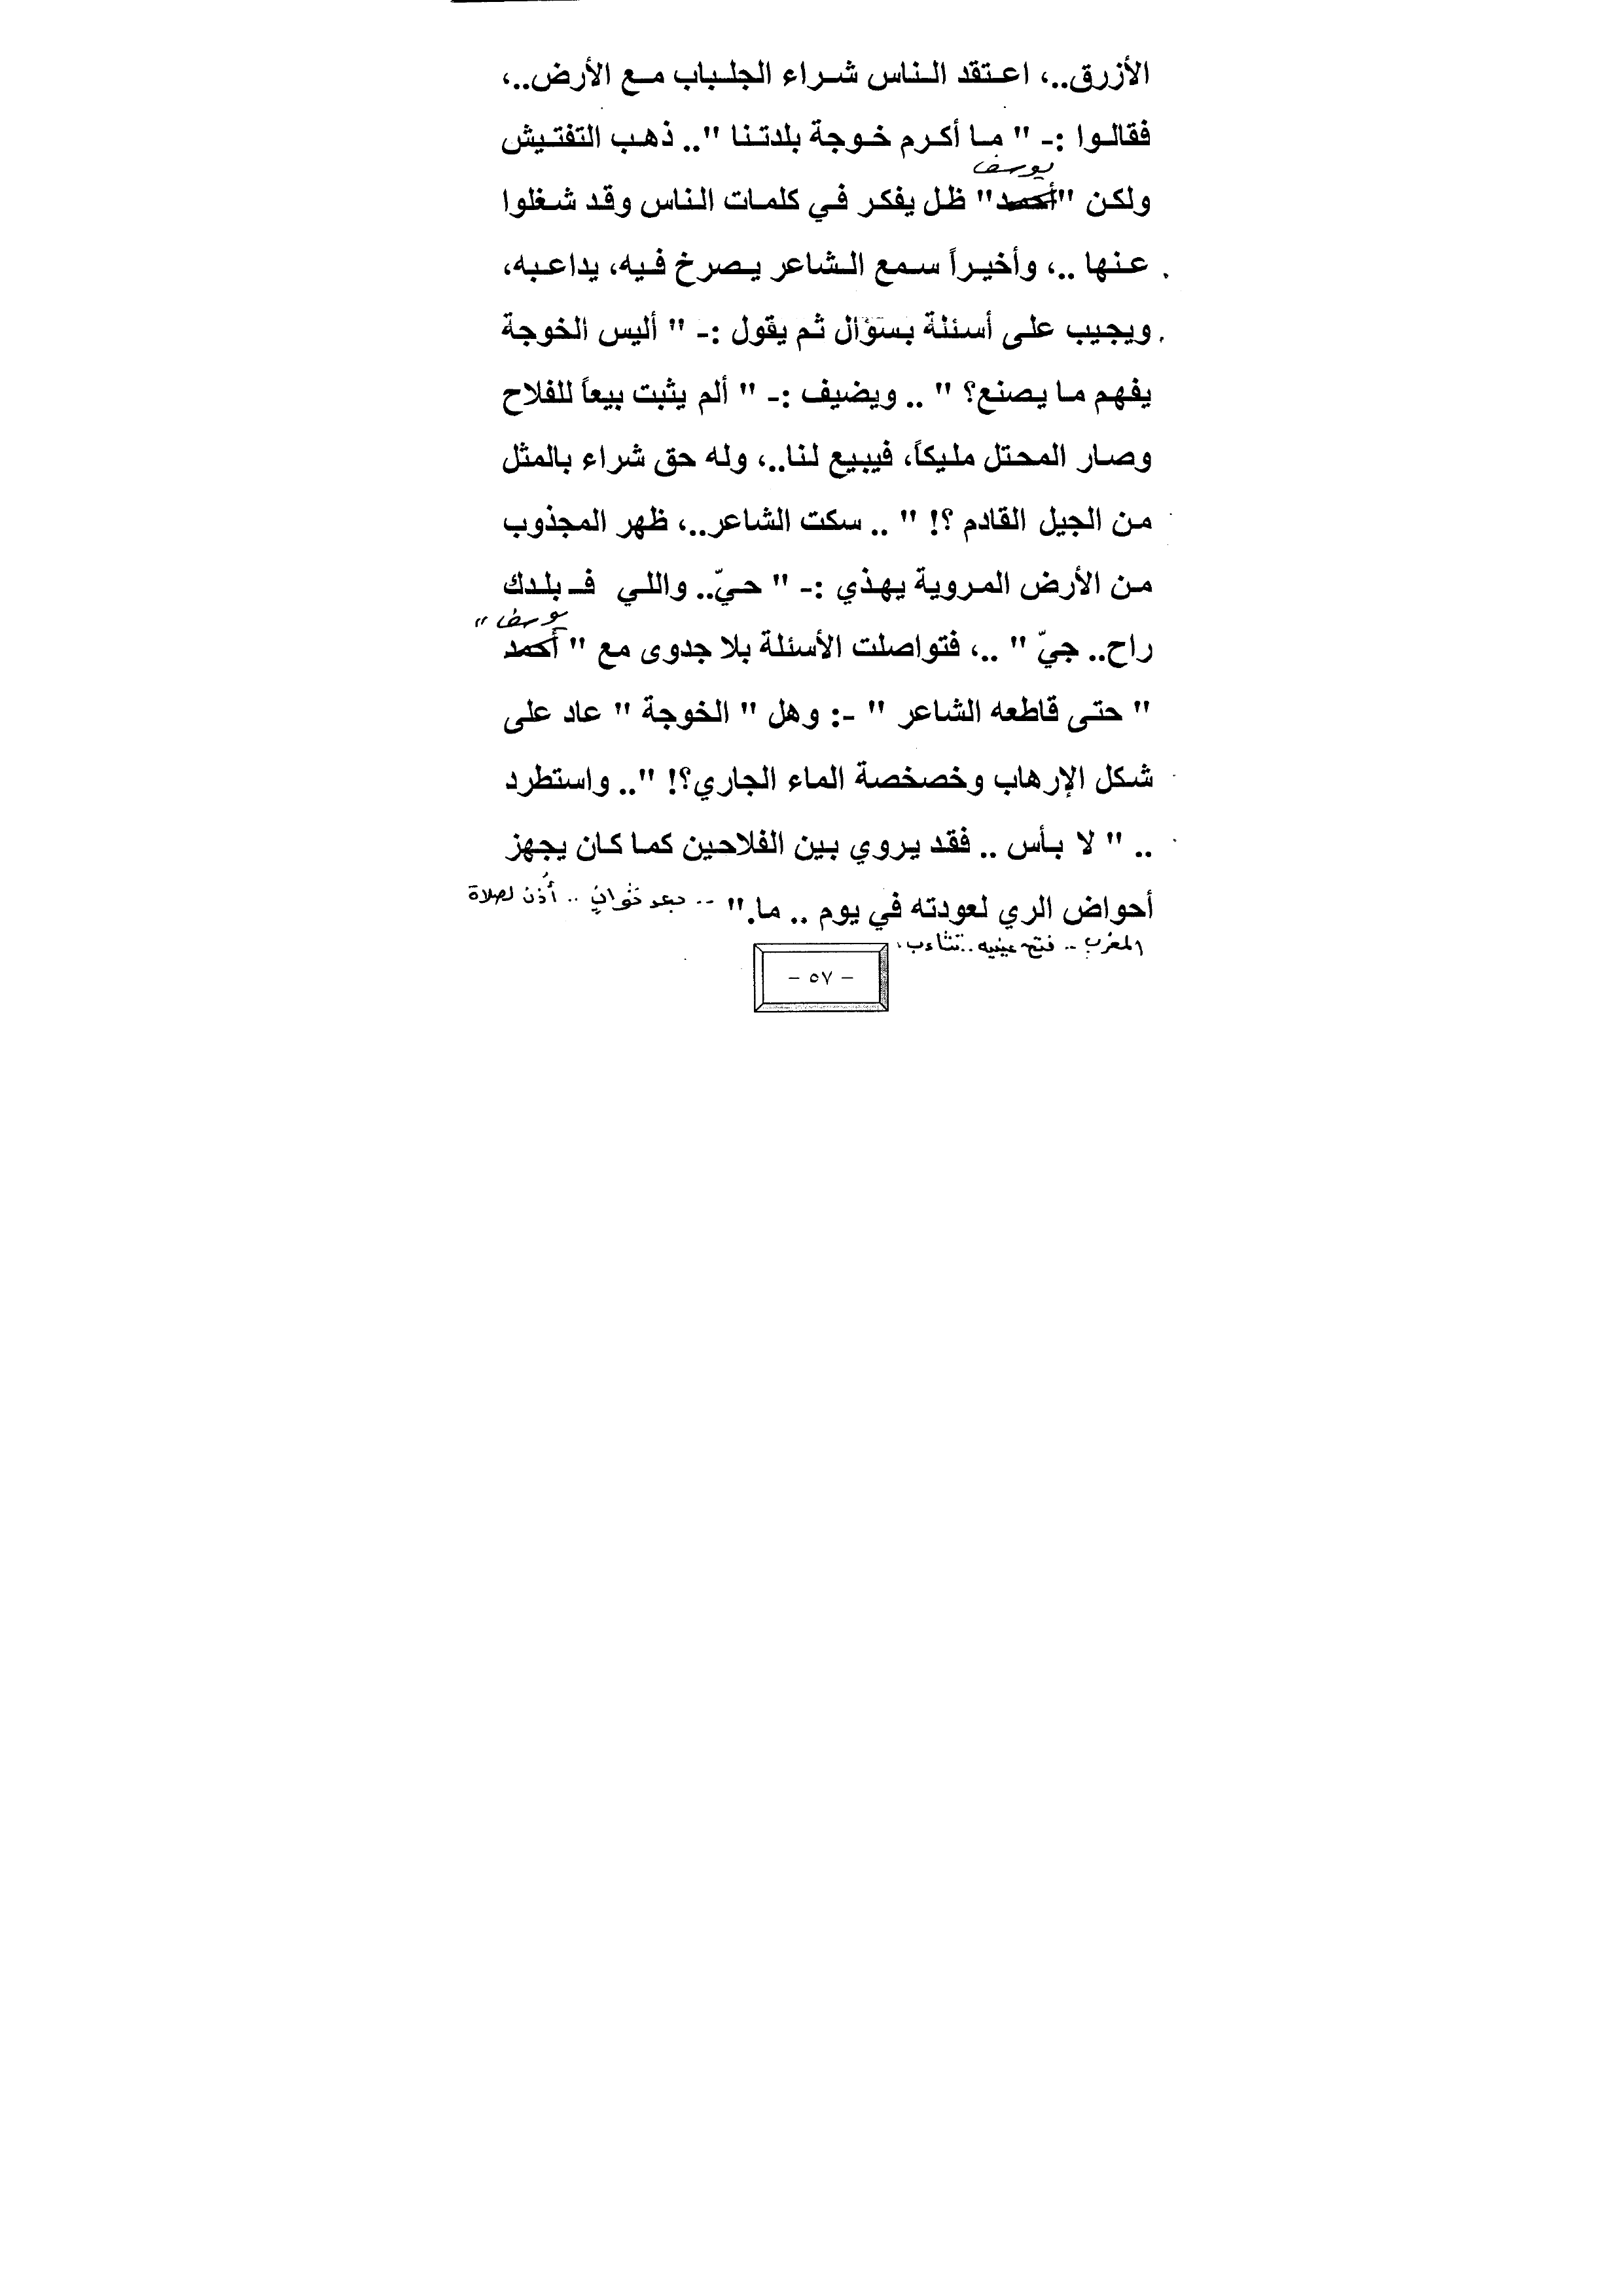 الأزرق..، اعتقد الناس شراء الجلباب مع الأرض..،
فقالوا :- " ما أكرم خوجة بلدتنا ".. ذهب التفتيش
يوسف
ولكن "أحمد" ظل يفكر في كلمات الناس وقد شغلوا
عنها ..، وأخيراً سمع الشاعر يصرخ فيه، يداعبه،
ويجيب على أسئلة بسؤال ثم يقول :- " أليس الخوجة
يفهم ما يصنع؟ " .. ويضيف :- " ألم يثبت بيعاً للفلاح
وصار المحتل مليكاً، فيبيع لنا..، وله حق شراء بالمثل
من الجيل القادم ؟! " .. سكت الشاعر..، ظهر المجذوب
من الأرض المروية يهذي :- " حيّ.. واللي فـ بلدك
يوسف "
راح.. جيّ " ..، فتواصلت الأسئلة بلا جدوى مع " أحمد
" حتى قاطعه الشاعر " -: وهل " الخوجة " عاد على
شكل الإرهاب وخصخصة الماء الجاري؟! ".. واستطرد
.. " لا بأس .. فقد يروي بين الفلاحين كما كان يجهز
أحواض الري لعودته في يوم .. ما." .. بعد ثوانٍ .. أُذن لصلاة
المغرب .. فتح عينيه .. تثاءب،
- ٥٧ -